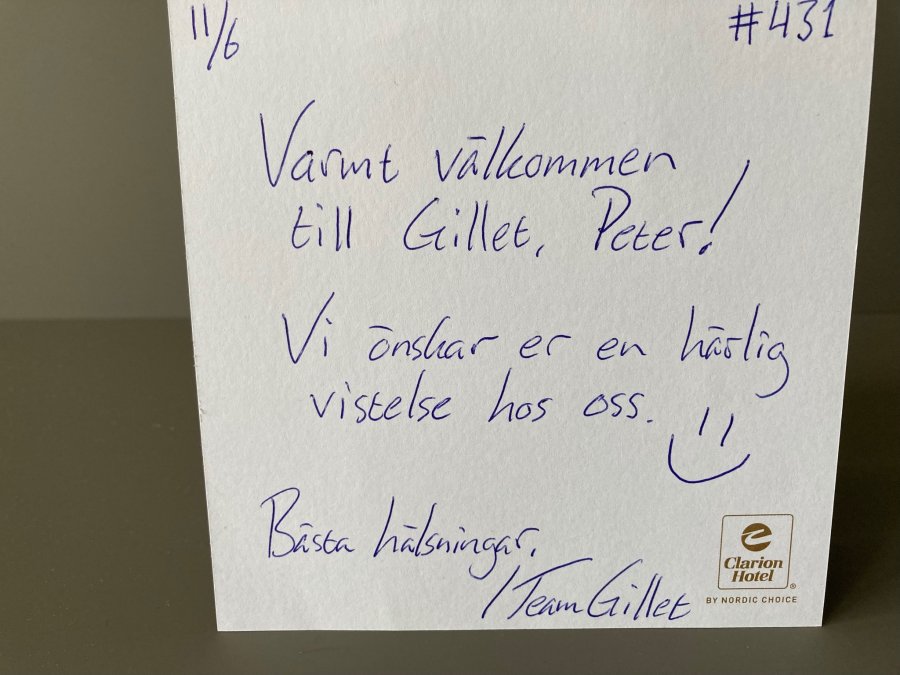 11/6 #431
Varmt välkommen
till Gillet, Peter!
Vi önskar er en härlig
vistelse hos oss.
Bästa hälsningar,
/Team Gillet
Clarion
Hotel®
BY NORDIC CHOICE